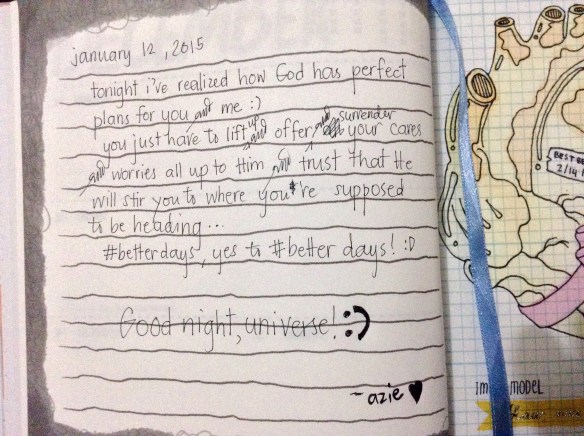 january 12, 2015
tonight i've realized how God has perfect
plans for you and me :)
you just have to lift up and offer and surrender your cares
and worries all up to Him and trust that He
will stir you to where you're supposed
to be heading...
#betterdays, yes to #better days! :D
Good night, universe! :)
- azie ♥
BEST
2/14
IM MODEL